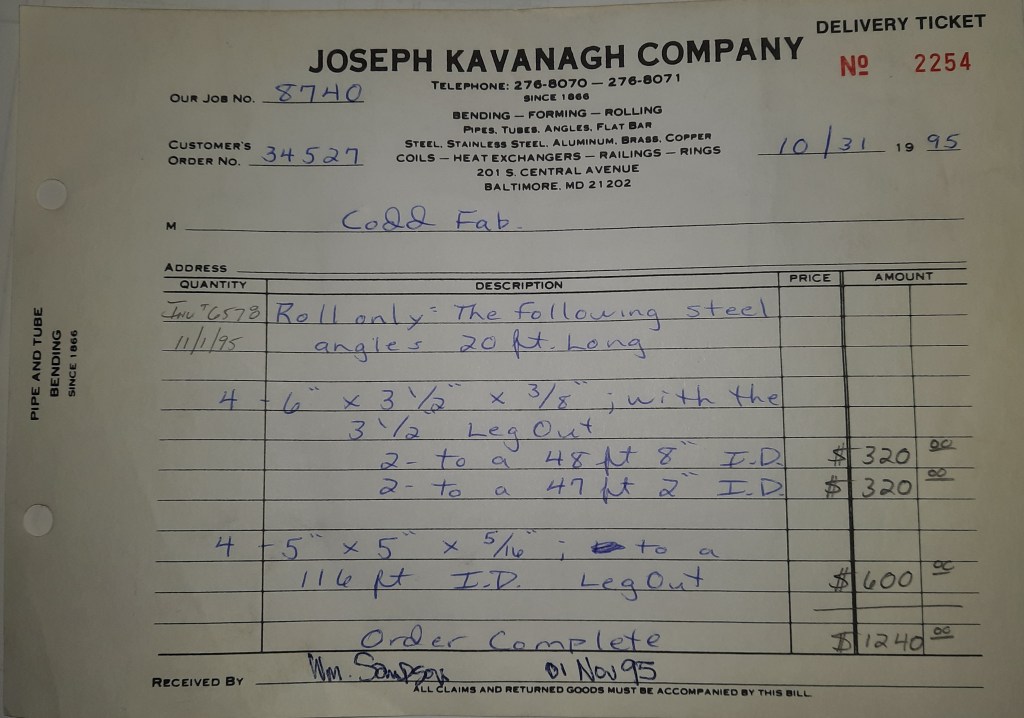 DELIVERY TICKET
JOSEPH KAVANAGH COMPANY
Nº 2254
TELEPHONE: 276-8070 — 276-8071
SINCE 1866
OUR JOB NO. 8740
BENDING — FORMING — ROLLING
PIPES, TUBES, ANGLES, FLAT BAR
STEEL, STAINLESS STEEL, ALUMINUM, BRASS, COPPER
CUSTOMER'S
ORDER NO. 34527
COILS — HEAT EXCHANGERS — RAILINGS — RINGS
10/31 19 95
201 S. CENTRAL AVENUE
BALTIMORE, MD 21202
M Codd Fab.
ADDRESS
QUANTITY DESCRIPTION PRICE AMOUNT
Inv # 6578 Roll only: The following steel
11/1/95 angles 20 ft. Long
4 - 6" x 3 1/2" x 3/8" ; with the
3 1/2 Leg Out
2- to a 48 ft 8" I.D. $ 320 00
2- to a 47 ft 2" I.D. $ 320 00
4 - 5" x 5" x 5/16" ; to a
116 ft I.D. Leg Out $ 600 00
Order Complete $ 1240 00
RECEIVED BY Wm. Sampson 01 Nov 95
ALL CLAIMS AND RETURNED GOODS MUST BE ACCOMPANIED BY THIS BILL.
PIPE AND TUBE
BENDING
SINCE 1866